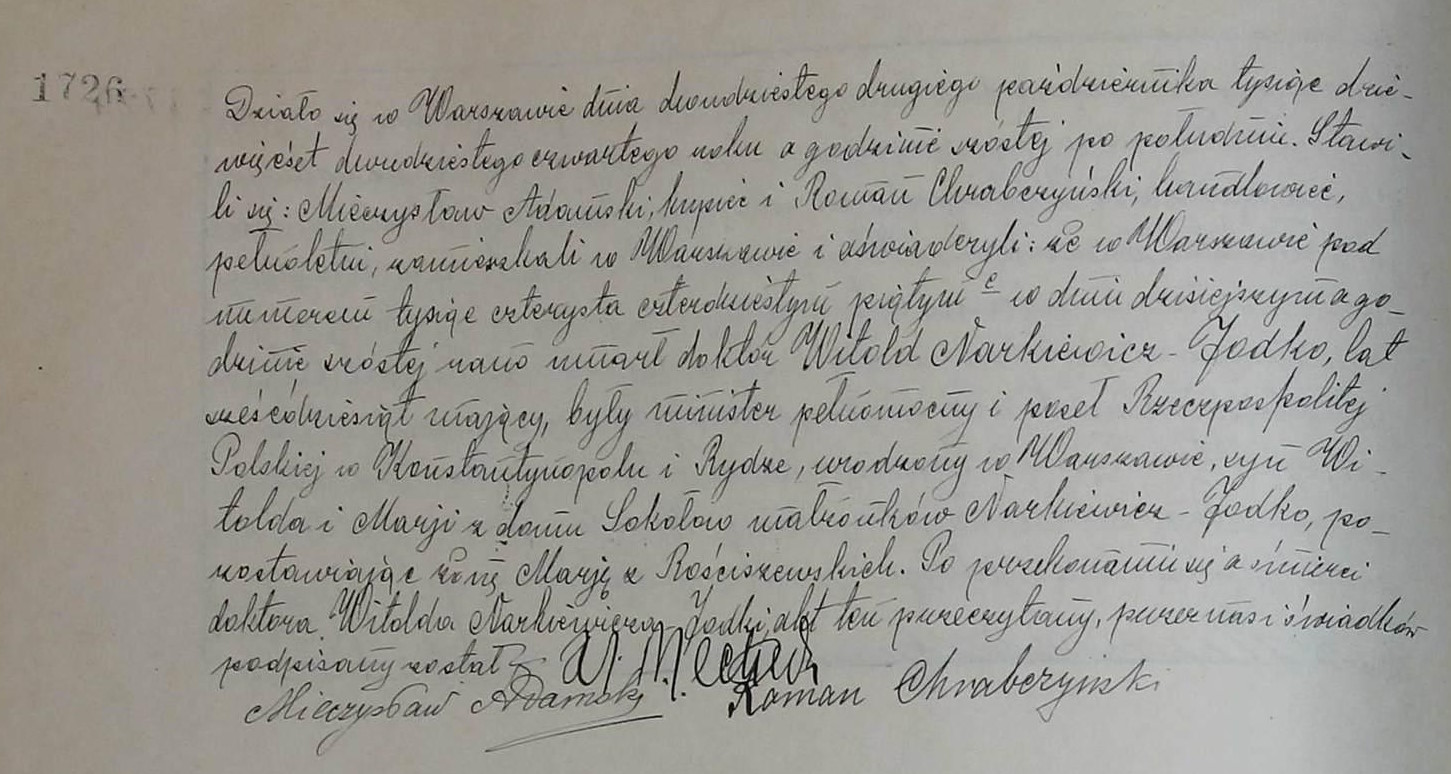 1726
Działo się w Warszawie dnia dwudziestego drugiego października tysiąc dzie-
więćset dwudziestego czwartego roku o godzinie szóstej po południu. Stawi-
li się: Mieczysław Adamski, kupiec i Roman Chrabczyński, handlowiec,
pełnoletni, zamieszkali w Warszawie i oświadczyli: że w Warszawie pod
numerem tysiąc czterysta czterdziestym piątym c w dniu dzisiejszym o go-
dzinie szóstej rano umarł doktór Witold Narkiewicz-Jodko, lat
sześćdziesiąt mający, były minister pełnomocny i poseł Rzeczpospolitej
Polskiej w Konstantynopolu i Rydze, urodzony w Warszawie, syn Wi-
tolda i Marji z domu Sokołow małżonków Narkiewicz-Jodko, po-
zostawiając żonę Marję z Rościszewskich. Po przekonaniu się o śmierci
doktora Witolda Narkiewicza Jodki, akt ten przeczytany, przez nas i świadków
podpisany został
Mieczysław Adamski Roman Chrabczyński